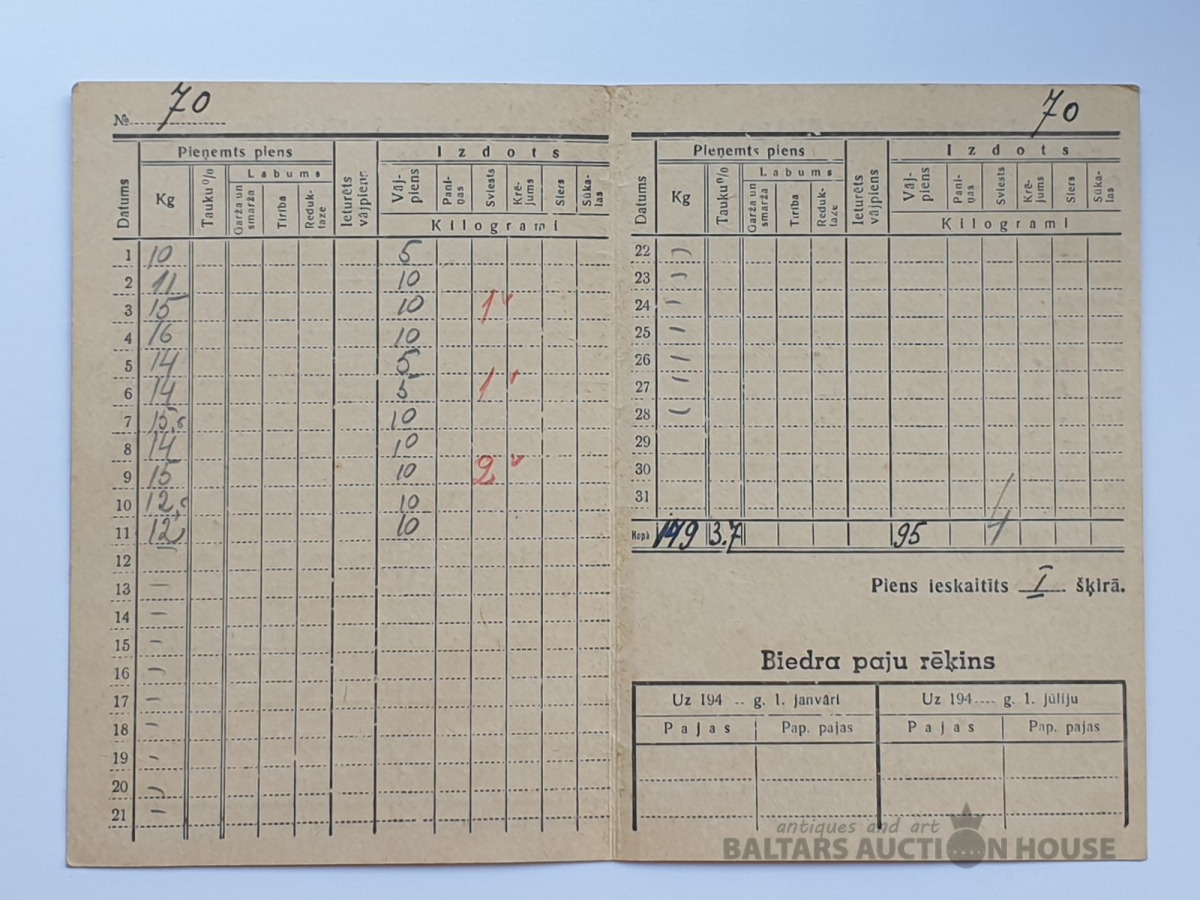 № 70
Pieņemts piens Izdots
Datums Kg Tauku % Labums Ieturēts vājpiens Vājpiens Paniņas Sviests Krējums Siers Sūkalas
Garža un smarža Tīrība Reduktaze
Kilogrami
1 10 5
2 11 10
3 15 10 1
4 16 10
5 14 5
6 14 5 1
7 15,5 10
8 14 10
9 15 10 2
10 12,5 10
11 12 10
12 –
13 –
14 –
15 –
16 –
17 –
18 –
19 –
20 –
21 –
70
Pieņemts piens Izdots
Datums Kg Tauku % Labums Ieturēts vājpiens Vājpiens Paniņas Sviests Krējums Siers Sūkalas
Garža un smarža Tīrība Reduktaze
Kilogrami
22 –
23 –
24 –
25 –
26 –
27 –
28 –
29
30
31
Kopā 149 3.7 95 4
Piens ieskaitīts I šķirā.
Biedra paju rēķins
Uz 194 g. 1. janvāri Uz 194 g. 1. jūliju
Pajas Pap. pajas Pajas Pap. pajas
antiques and art
BALTARS AUCTION HOUSE